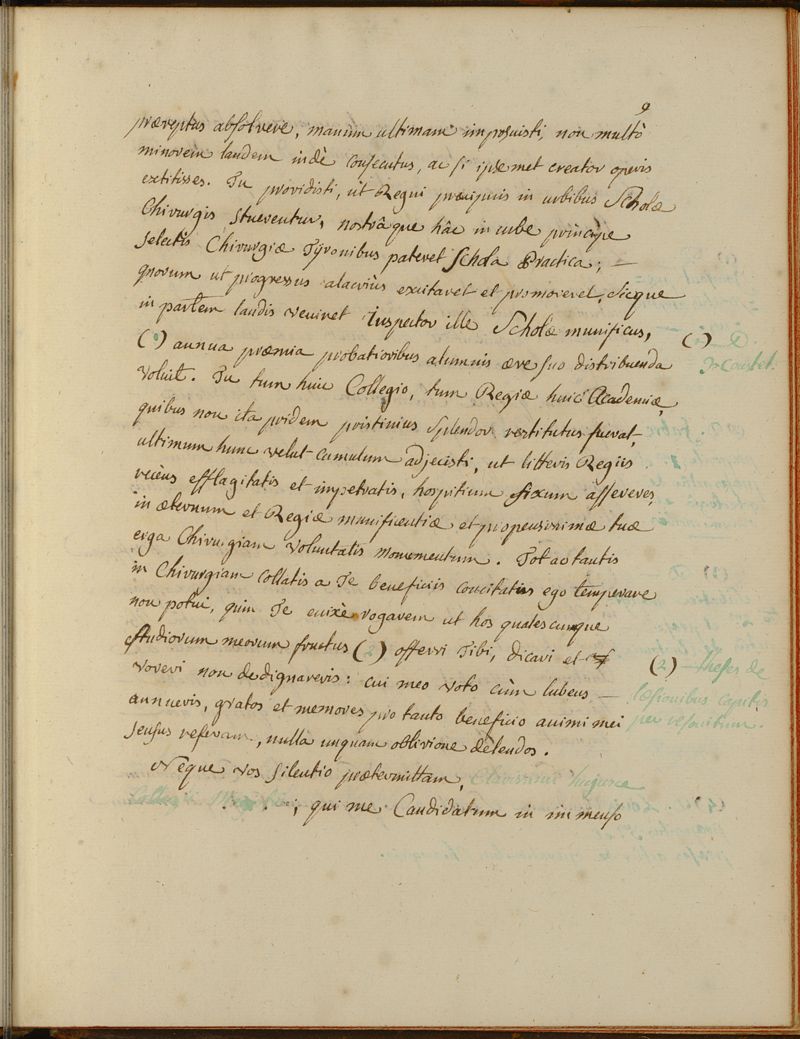 9
præreptus absolvere, manum ultimam imposuisti, non multò
minorem laudem indè consecutus, ac si ipsemet creator operis
extitisses. Tu providisti, ut Regni præcipuis in urbibus Scholæ
Chirurgis struerentur, nostrâque hâc in urbe principe
selectis Chirurgiæ Tyronibus pateret Schola Practica; —
quorum ut progressus alacriùs excitaret et promoveret, sicque
in partem laudis veniret Inspector ille Scholæ munificus,
(1) annua præmia probatioribus alumnis ære suo distribuenda
voluit. Tu tum huic Collegio, tum Regiæ huic Academiæ,
quibus non ita pridem pristinius splendor restitutus fuerat,
ultimum hunc velut cumulum adjecisti, ut litteris Regiis
reciens efflagitatis et impetratis, hospitium fixum assereres,
in æternum et Regiæ munificentiæ et propensissimæ tuæ
erga Chirurgiam voluntatis monumentum. Tot ac tantis
in Chirurgiam collatis a Te beneficiis concitatus ego temperare
non potui, quin Te enixè rogarem ut hos qualescunque
studiorum meorum fructus (2) offerri Tibi, dicari et
voveri non dedignareris: cui meo voto cùm lubens —
annueris, gratos et memores pro tanto beneficio animi mei
sensus referam, nulla unquam oblivione delendos.
Neque vos silentio prætermittam, Clarissimi hujusce
Collegii , qui me Candidatum in immenso
(1) D.
(2) Theses de
læsionibus capitis
per